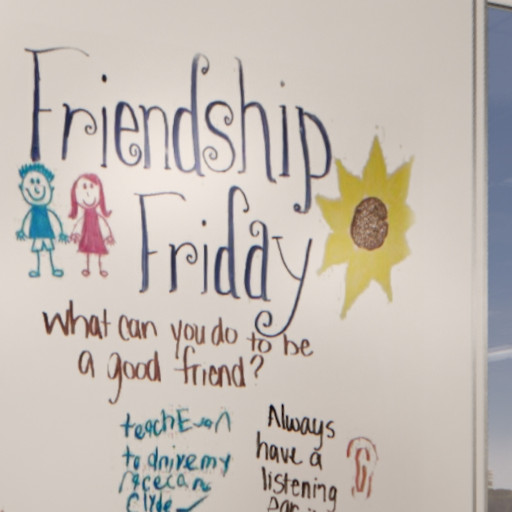 Friendship
Friday
What can you do to be
a good friend?
teach Evan
to drive my
racecar
Clyde
Always
have a
listening